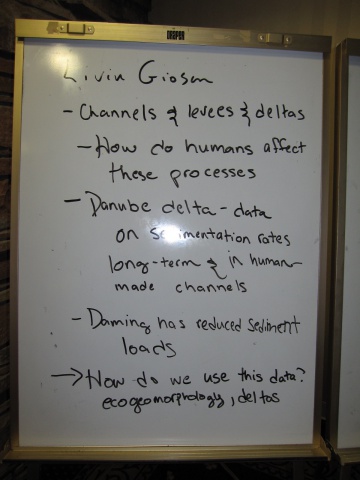 DRAPER
Liviu Giosan
- Channels & levees & deltas
- How do humans affect
these processes
- Danube delta - data
on sedimentation rates
long-term & in human
made channels
- Daming has reduced sediment
loads
→ How do we use this data?
ecogeomorphology, deltas